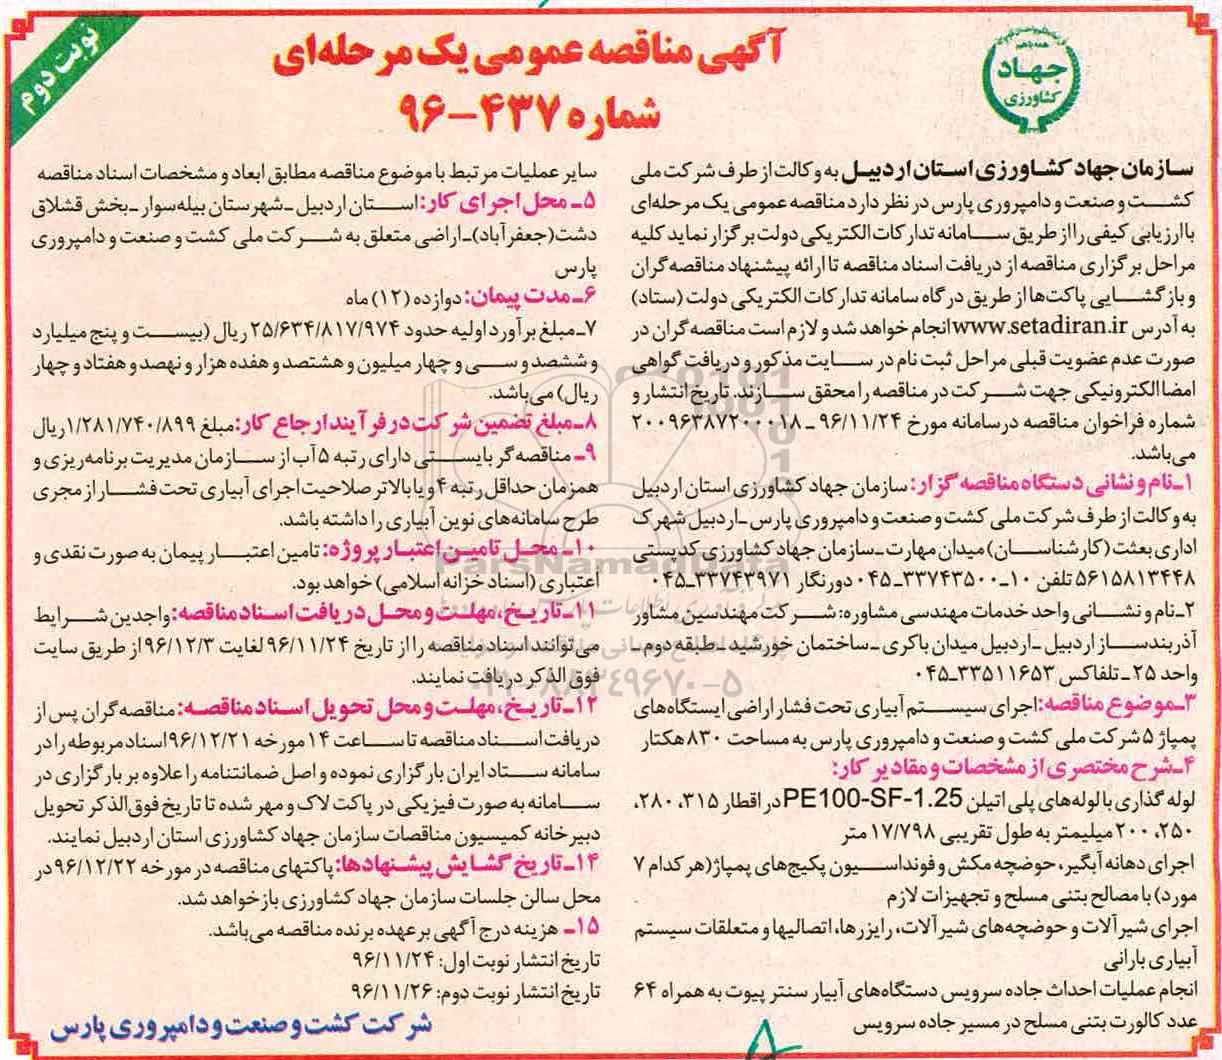 نوبت دوم
همه با هم
جهاد
کشاورزی
آگهی مناقصه عمومی یک مرحله‌ای
شماره ۴۳۷-۹۶
سازمان جهاد کشاورزی استان اردبیل به وکالت از طرف شرکت ملی
کشت و صنعت و دامپروری پارس در نظر دارد مناقصه عمومی یک مرحله‌ای
با ارزیابی کیفی را از طریق سامانه تدارکات الکتریکی دولت برگزار نماید کلیه
مراحل برگزاری مناقصه از دریافت اسناد مناقصه تا ارائه پیشنهاد مناقصه گران
و بازگشایی پاکت‌ها از طریق درگاه سامانه تدارکات الکتریکی دولت (ستاد)
به آدرس www.setadiran.ir انجام خواهد شد و لازم است مناقصه گران در
صورت عدم عضویت قبلی مراحل ثبت نام در سایت مذکور و دریافت گواهی
امضا الکترونیکی جهت شرکت در مناقصه را محقق سازند. تاریخ انتشار و
شماره فراخوان مناقصه در سامانه مورخ ۹۶/۱۱/۲۴ ـ ۲۰۰۹۶۳۸۷۲۰۰۰۰۱۸
می‌باشد.
۱ـ نام و نشانی دستگاه مناقصه گزار: سازمان جهاد کشاورزی استان اردبیل
به وکالت از طرف شرکت ملی کشت و صنعت و دامپروری پارس ـ اردبیل شهرک
اداری بعثت (کارشناسان) میدان مهارت ـ سازمان جهاد کشاورزی کدپستی
۵۶۱۵۸۱۳۴۴۸ تلفن ۱۰ـ۳۳۷۴۳۵۰۰ـ۰۴۵ دورنگار ۳۳۷۴۳۹۷۱ـ۰۴۵
۲ـ نام و نشانی واحد خدمات مهندسی مشاوره: شرکت مهندسین مشاور
آذربندساز اردبیل ـ اردبیل میدان باکری ـ ساختمان خورشید ـ طبقه دوم ـ
واحد ۲۵ ـ تلفاکس ۳۳۵۱۱۶۵۳ـ۰۴۵
۳ـ موضوع مناقصه: اجرای سیستم آبیاری تحت فشار اراضی ایستگاه‌های
پمپاژ ۵ شرکت ملی کشت و صنعت و دامپروری پارس به مساحت ۸۳۰ هکتار
۴ـ شرح مختصری از مشخصات و مقادیر کار:
لوله گذاری با لوله‌های پلی اتیلن PE100-SF-1.25 در اقطار ۳۱۵، ۲۸۰،
۲۵۰، ۲۰۰ میلیمتر به طول تقریبی ۱۷/۷۹۸ متر
اجرای دهانه آبگیر، حوضچه مکش و فونداسیون پکیج‌های پمپاژ (هر کدام ۷
مورد) با مصالح بتنی مسلح و تجهیزات لازم
اجرای شیرآلات و حوضچه‌های شیرآلات، رایزرها، اتصالیها و متعلقات سیستم
آبیاری بارانی
انجام عملیات احداث جاده سرویس دستگاه‌های آبیار سنتر پیوت به همراه ۶۴
عدد کالورت بتنی مسلح در مسیر جاده سرویس
سایر عملیات مرتبط با موضوع مناقصه مطابق ابعاد و مشخصات اسناد مناقصه
۵ـ محل اجرای کار: استان اردبیل ـ شهرستان بیله‌سوار ـ بخش قشلاق
دشت (جعفرآباد) ـ اراضی متعلق به شرکت ملی کشت و صنعت و دامپروری
پارس
۶ـ مدت پیمان: دوازده (۱۲) ماه
۷ـ مبلغ برآورد اولیه حدود ۲۵/۶۳۴/۸۱۷/۹۷۴ ریال (بیست و پنج میلیارد
و ششصد و سی و چهار میلیون و هشتصد و هفده هزار و نهصد و هفتاد و چهار
ریال) می‌باشد.
۸ـ مبلغ تضمین شرکت در فرآیند ارجاع کار: مبلغ ۱/۲۸۱/۷۴۰/۸۹۹ ریال
۹ـ مناقصه گر بایستی دارای رتبه ۵ آب از سازمان مدیریت برنامه‌ریزی و
همزمان حداقل رتبه ۴ و یا بالاتر صلاحیت اجرای آبیاری تحت فشار از مجری
طرح سامانه‌های نوین آبیاری را داشته باشد.
۱۰ـ محل تامین اعتبار پروژه: تامین اعتبار پیمان به صورت نقدی و
اعتباری (اسناد خزانه اسلامی) خواهد بود.
۱۱ـ تاریخ، مهلت و محل دریافت اسناد مناقصه: واجدین شرایط
می‌توانند اسناد مناقصه را از تاریخ ۹۶/۱۱/۲۴ لغایت ۹۶/۱۲/۳ از طریق سایت
فوق الذکر دریافت نمایند.
۱۲ـ تاریخ، مهلت و محل تحویل اسناد مناقصه: مناقصه گران پس از
دریافت اسناد مناقصه تا ساعت ۱۴ مورخه ۹۶/۱۲/۲۱ اسناد مربوطه را در
سامانه ستاد ایران بارگزاری نموده و اصل ضمانتنامه را علاوه بر بارگزاری در
سامانه به صورت فیزیکی در پاکت لاک و مهر شده تا تاریخ فوق الذکر تحویل
دبیرخانه کمیسیون مناقصات سازمان جهاد کشاورزی استان اردبیل نمایند.
۱۴ـ تاریخ گشایش پیشنهادها: پاکتهای مناقصه در مورخه ۹۶/۱۲/۲۲ در
محل سالن جلسات سازمان جهاد کشاورزی باز خواهد شد.
۱۵ـ هزینه درج آگهی بر عهده برنده مناقصه می‌باشد.
تاریخ انتشار نوبت اول: ۹۶/۱۱/۲۴
تاریخ انتشار نوبت دوم: ۹۶/۱۱/۲۶
شرکت کشت و صنعت و دامپروری پارس
ParsNamadData
۰۲۱-۸۸۳۴۹۶۷۰-۵